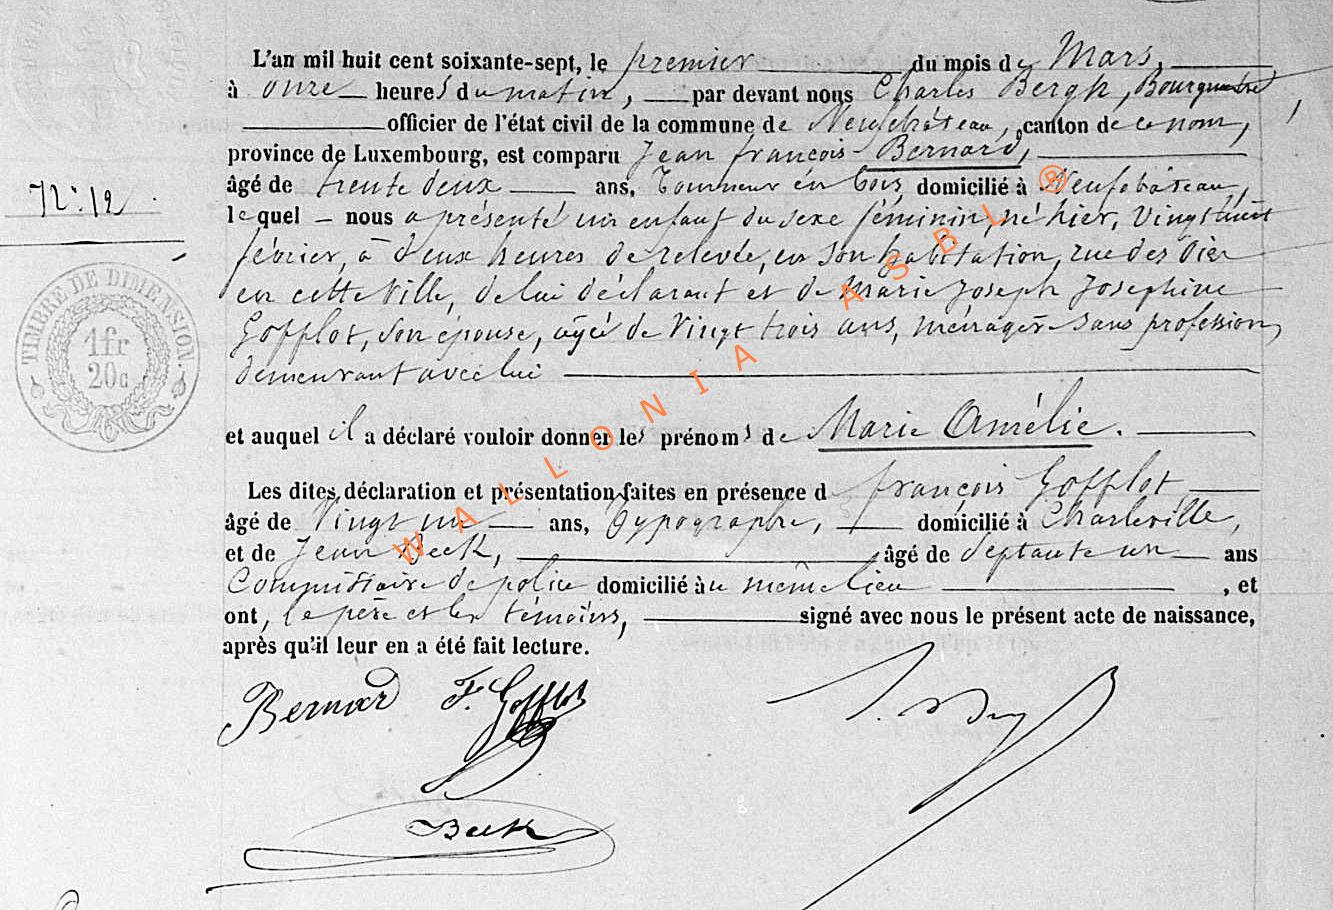 L'an mil huit cent soixante-sept, le premier du mois de Mars,
à onze heures du matin, par devant nous Charles Bergh, Bourgmestre
officier de l'état civil de la commune de Neufchâteau, canton de ce nom,
province de Luxembourg, est comparu Jean françois Bernard,
N°: 12.
âgé de trente deux ans, Tourneur en bois, domicilié à Neufchâteau,
lequel nous a présenté un enfant du sexe féminin, né hier, Vingt huit
février, à deux heures de relevée, en son habitation, rue des
en cette Ville, de lui déclarant et de Marie Joseph Josephine
Gofflot, son épouse, agée de Vingt trois ans, ménagère sans profession,
demeurant avec lui
TIMBRE DE DIMENSION.
1fr
20c
et auquel il a déclaré vouloir donner les prénoms de Marie Amélie.
Les dites déclaration et présentation faites en présence d françois Gofflot,
âgé de Vingt un ans, Typographe, domicilié à Charleville,
et de Jean Beck, âgé de Septante un ans
Commissaire de police domicilié au même lieu, et
ont, le père et les témoins, signé avec nous le présent acte de naissance,
après qu'il leur en a été fait lecture.
Bernard F. Gofflot
Beck
WALLONIA ASBL ®